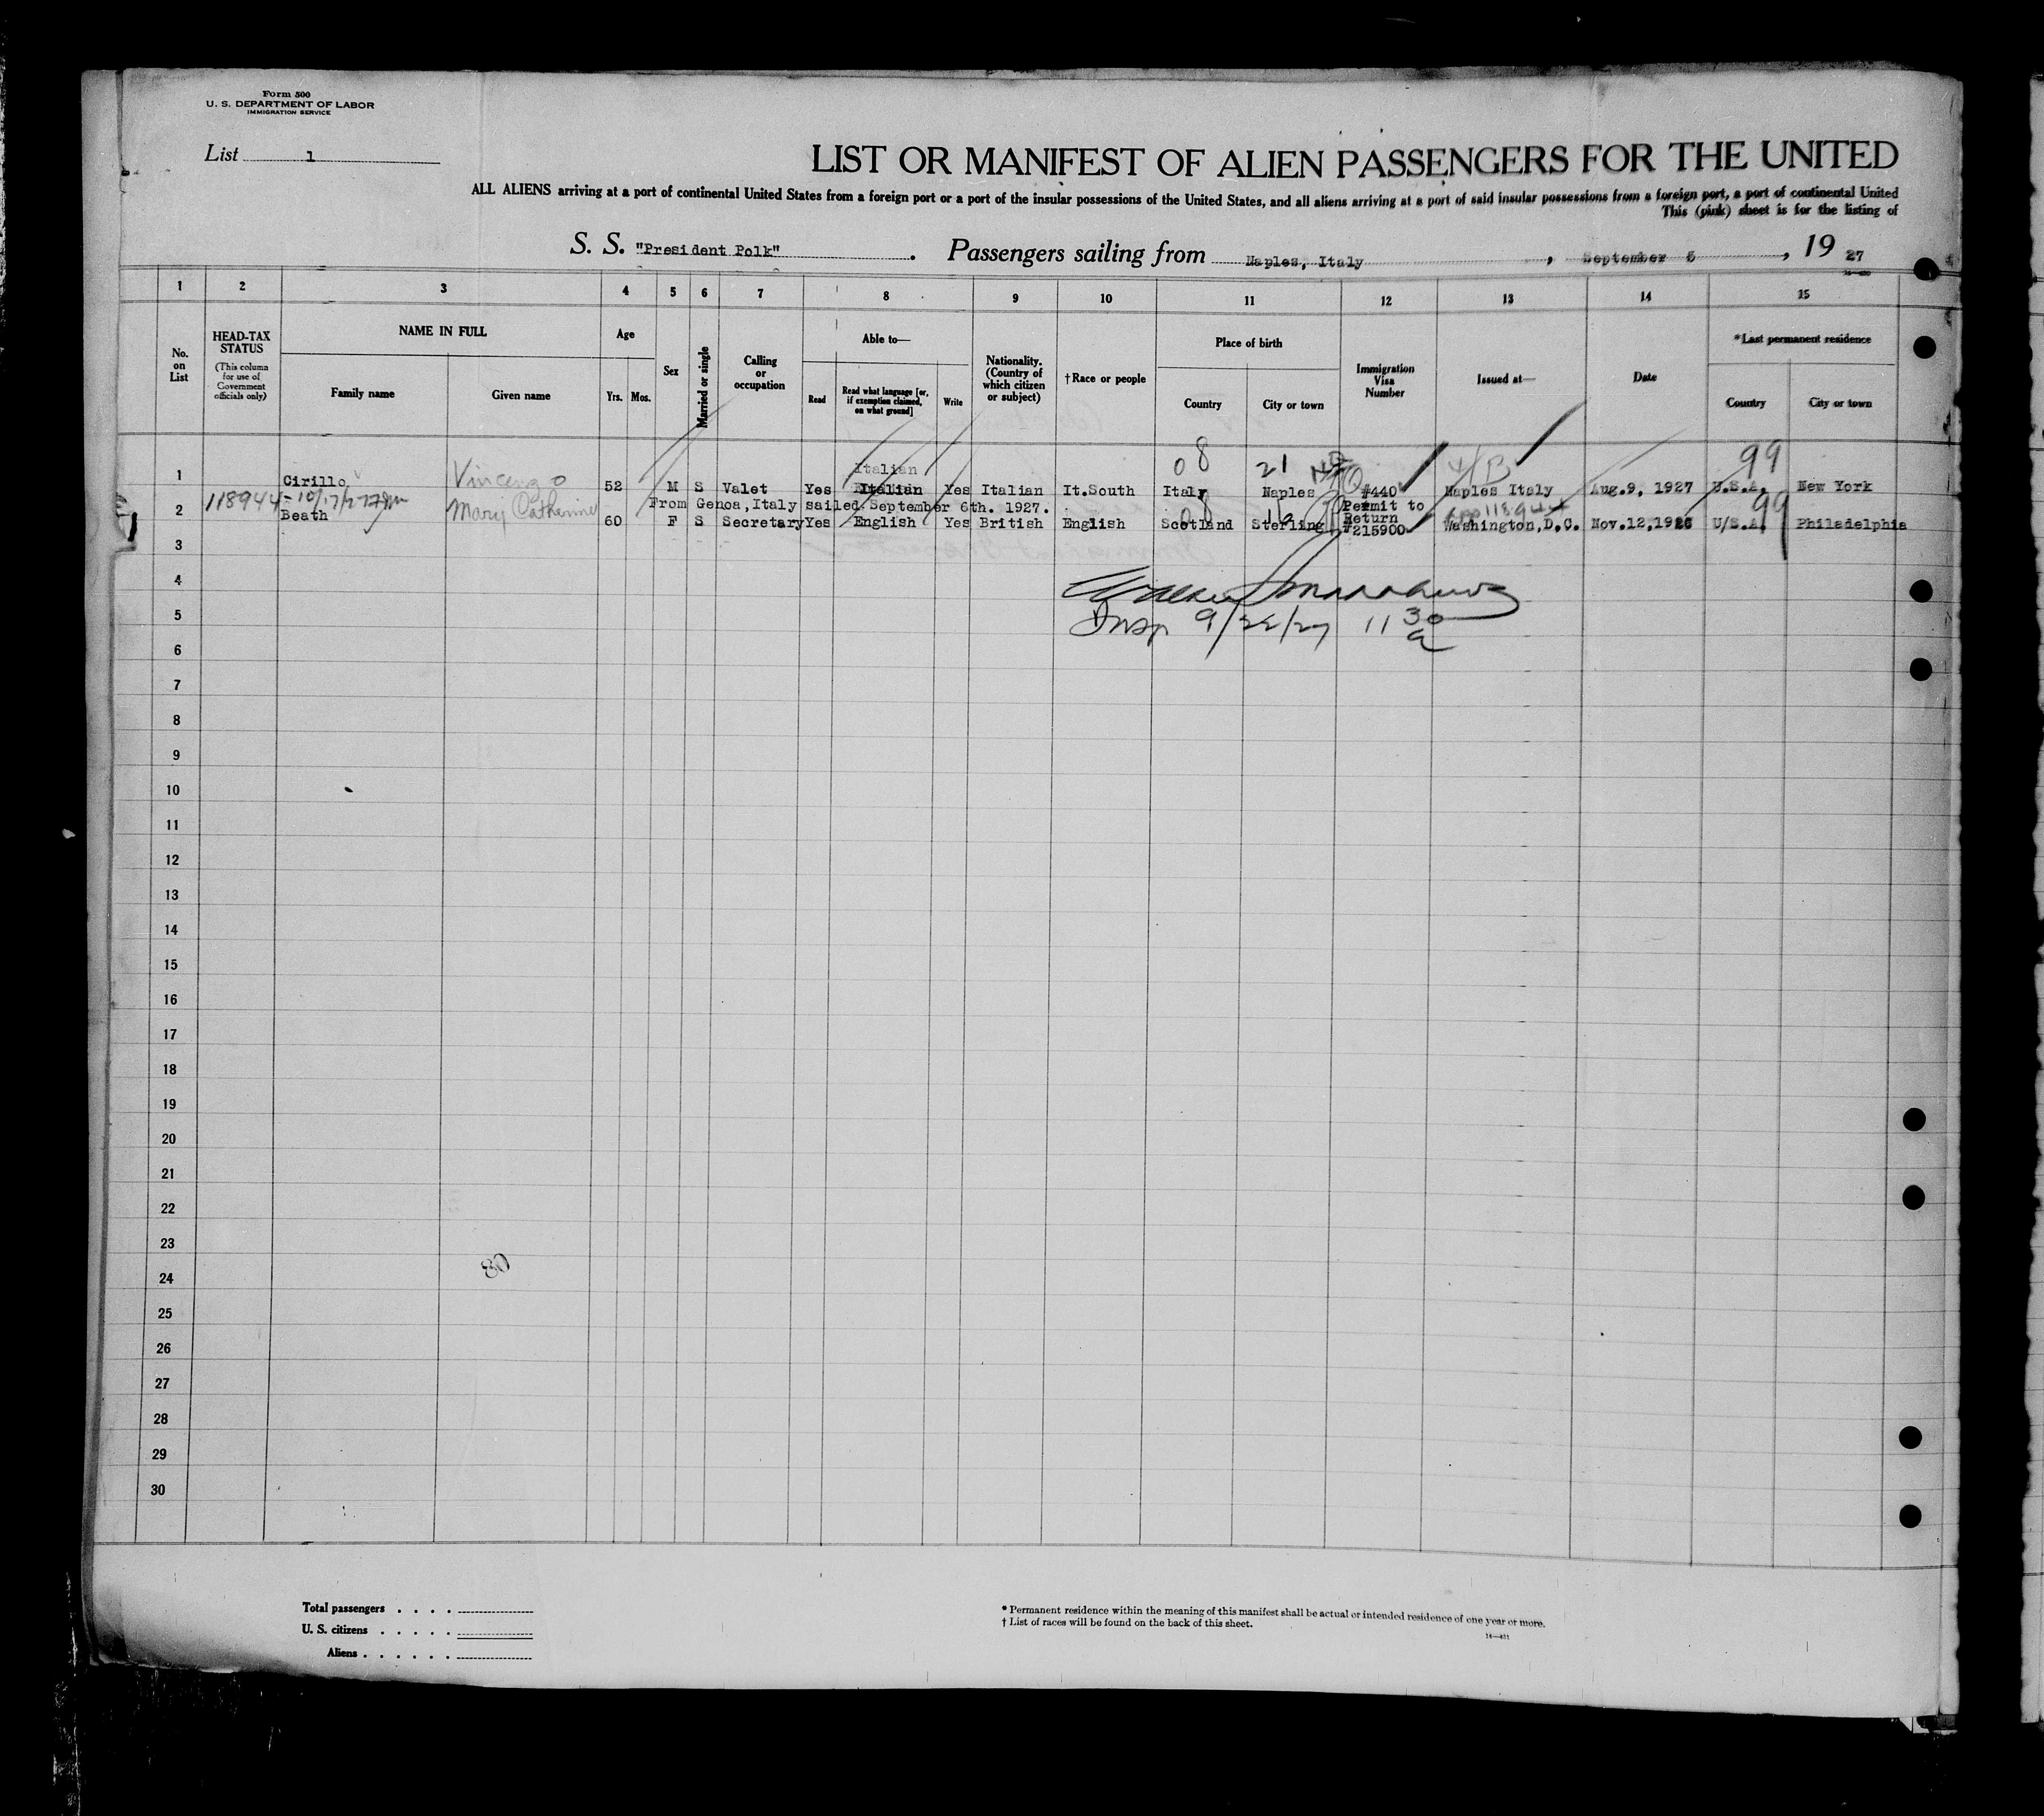 Form 500
U. S. DEPARTMENT OF LABOR
IMMIGRATION SERVICE
List 1
LIST OR MANIFEST OF ALIEN PASSENGERS FOR THE UNITED
ALL ALIENS arriving at a port of continental United States from a foreign port or a port of the insular possessions of the United States, and all aliens arriving at a port of said insular possessions from a foreign port, a port of continental United
This (pink) sheet is for the listing of
S. S. "President Polk". Passengers sailing from Naples, Italy, September 5, 19 27
1 2 3 4 5 6 7 8 9 10 11 12 13 14 15
No. on List
HEAD-TAX STATUS
(This column for use of Government officials only)
NAME IN FULL
Family name
Given name
Age
Yrs. Mos.
Sex
Married or single
Calling or occupation
Able to—
Read
Read what language [or, if exemption claimed, on what ground]
Write
Nationality. (Country of which citizen or subject)
†Race or people
Place of birth
Country
City or town
Immigration Visa Number
Issued at—
Date
*Last permanent residence
Country
City or town
08 21 99
Italian
1 Cirillo Vincenzo 52 M S Valet Yes Italian Yes Italian It.South Italy Naples #440 Naples Italy Aug.9, 1927 U.S.A. New York
118944-10/17/27
From Genoa,Italy sailed September 6th. 1927.
08 16 99
2 Beath Mary Catherine 60 F S Secretary Yes English Yes British English Scotland Sterling Permit to Return #215900 Washington,D.C. Nov.12,1926 U/S.A. Philadelphia
3
4
5
Insp 9/22/27 11 30 a
6
7
8
9
10
11
12
13
14
15
16
17
18
19
20
21
22
23
80
24
25
26
27
28
29
30
Total passengers . . . .
U. S. citizens . . . . .
Aliens . . . . . .
* Permanent residence within the meaning of this manifest shall be actual or intended residence of one year or more.
† List of races will be found on the back of this sheet.